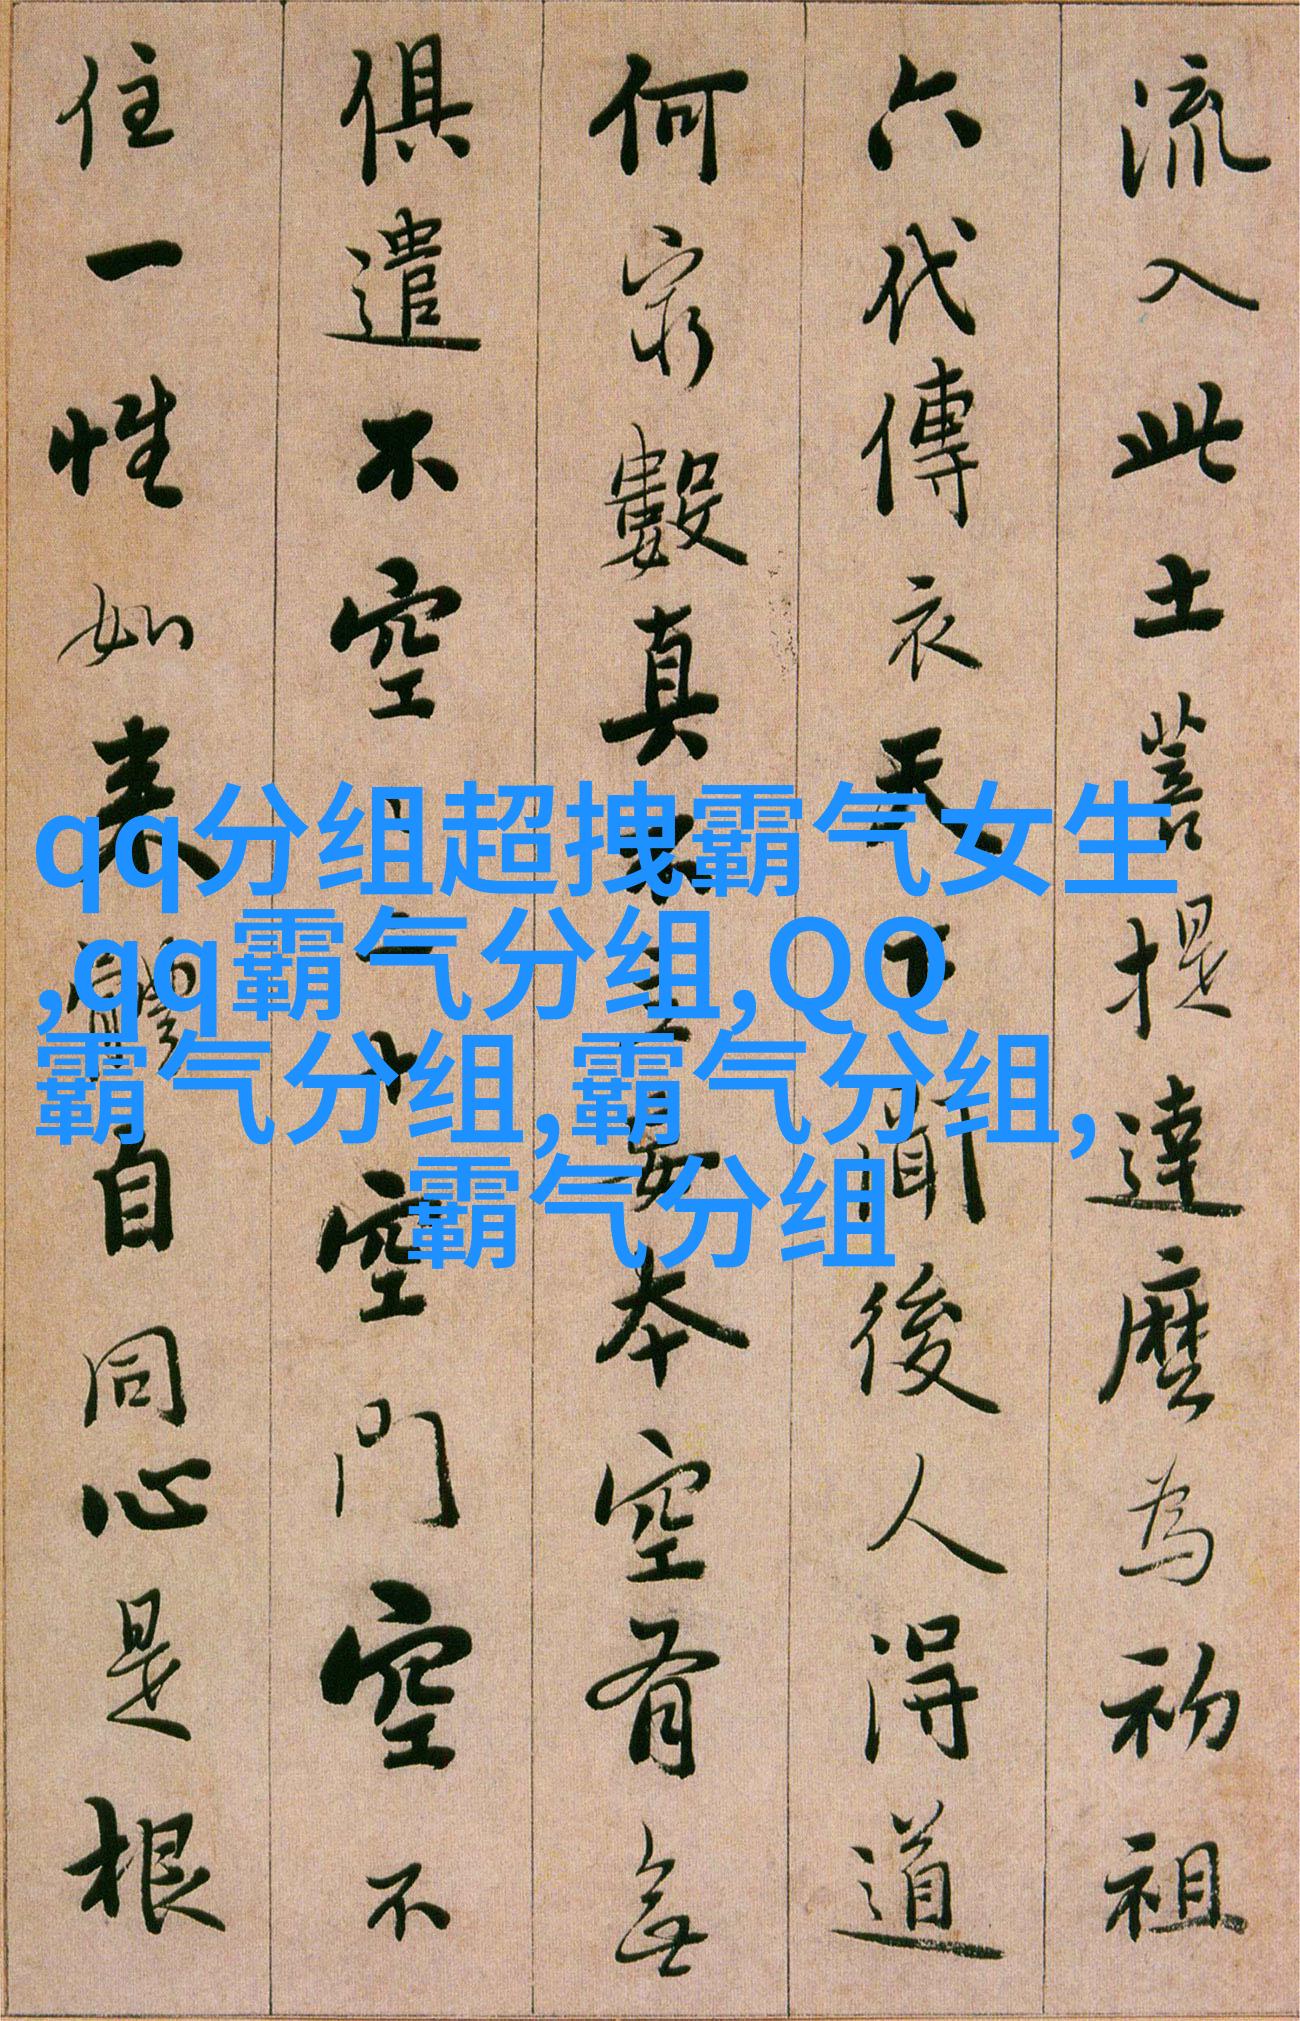 流入此土菩提達磨為初祖
六代傳衣天下聞後人得道
何窮數真不立妄本空有無
俱遣不空空二十空門空不
住一性如来體自同心是根
qq分组超拽霸气女生
,qq霸气分组,QQ
霸气分组,霸气分组,
霸气分组